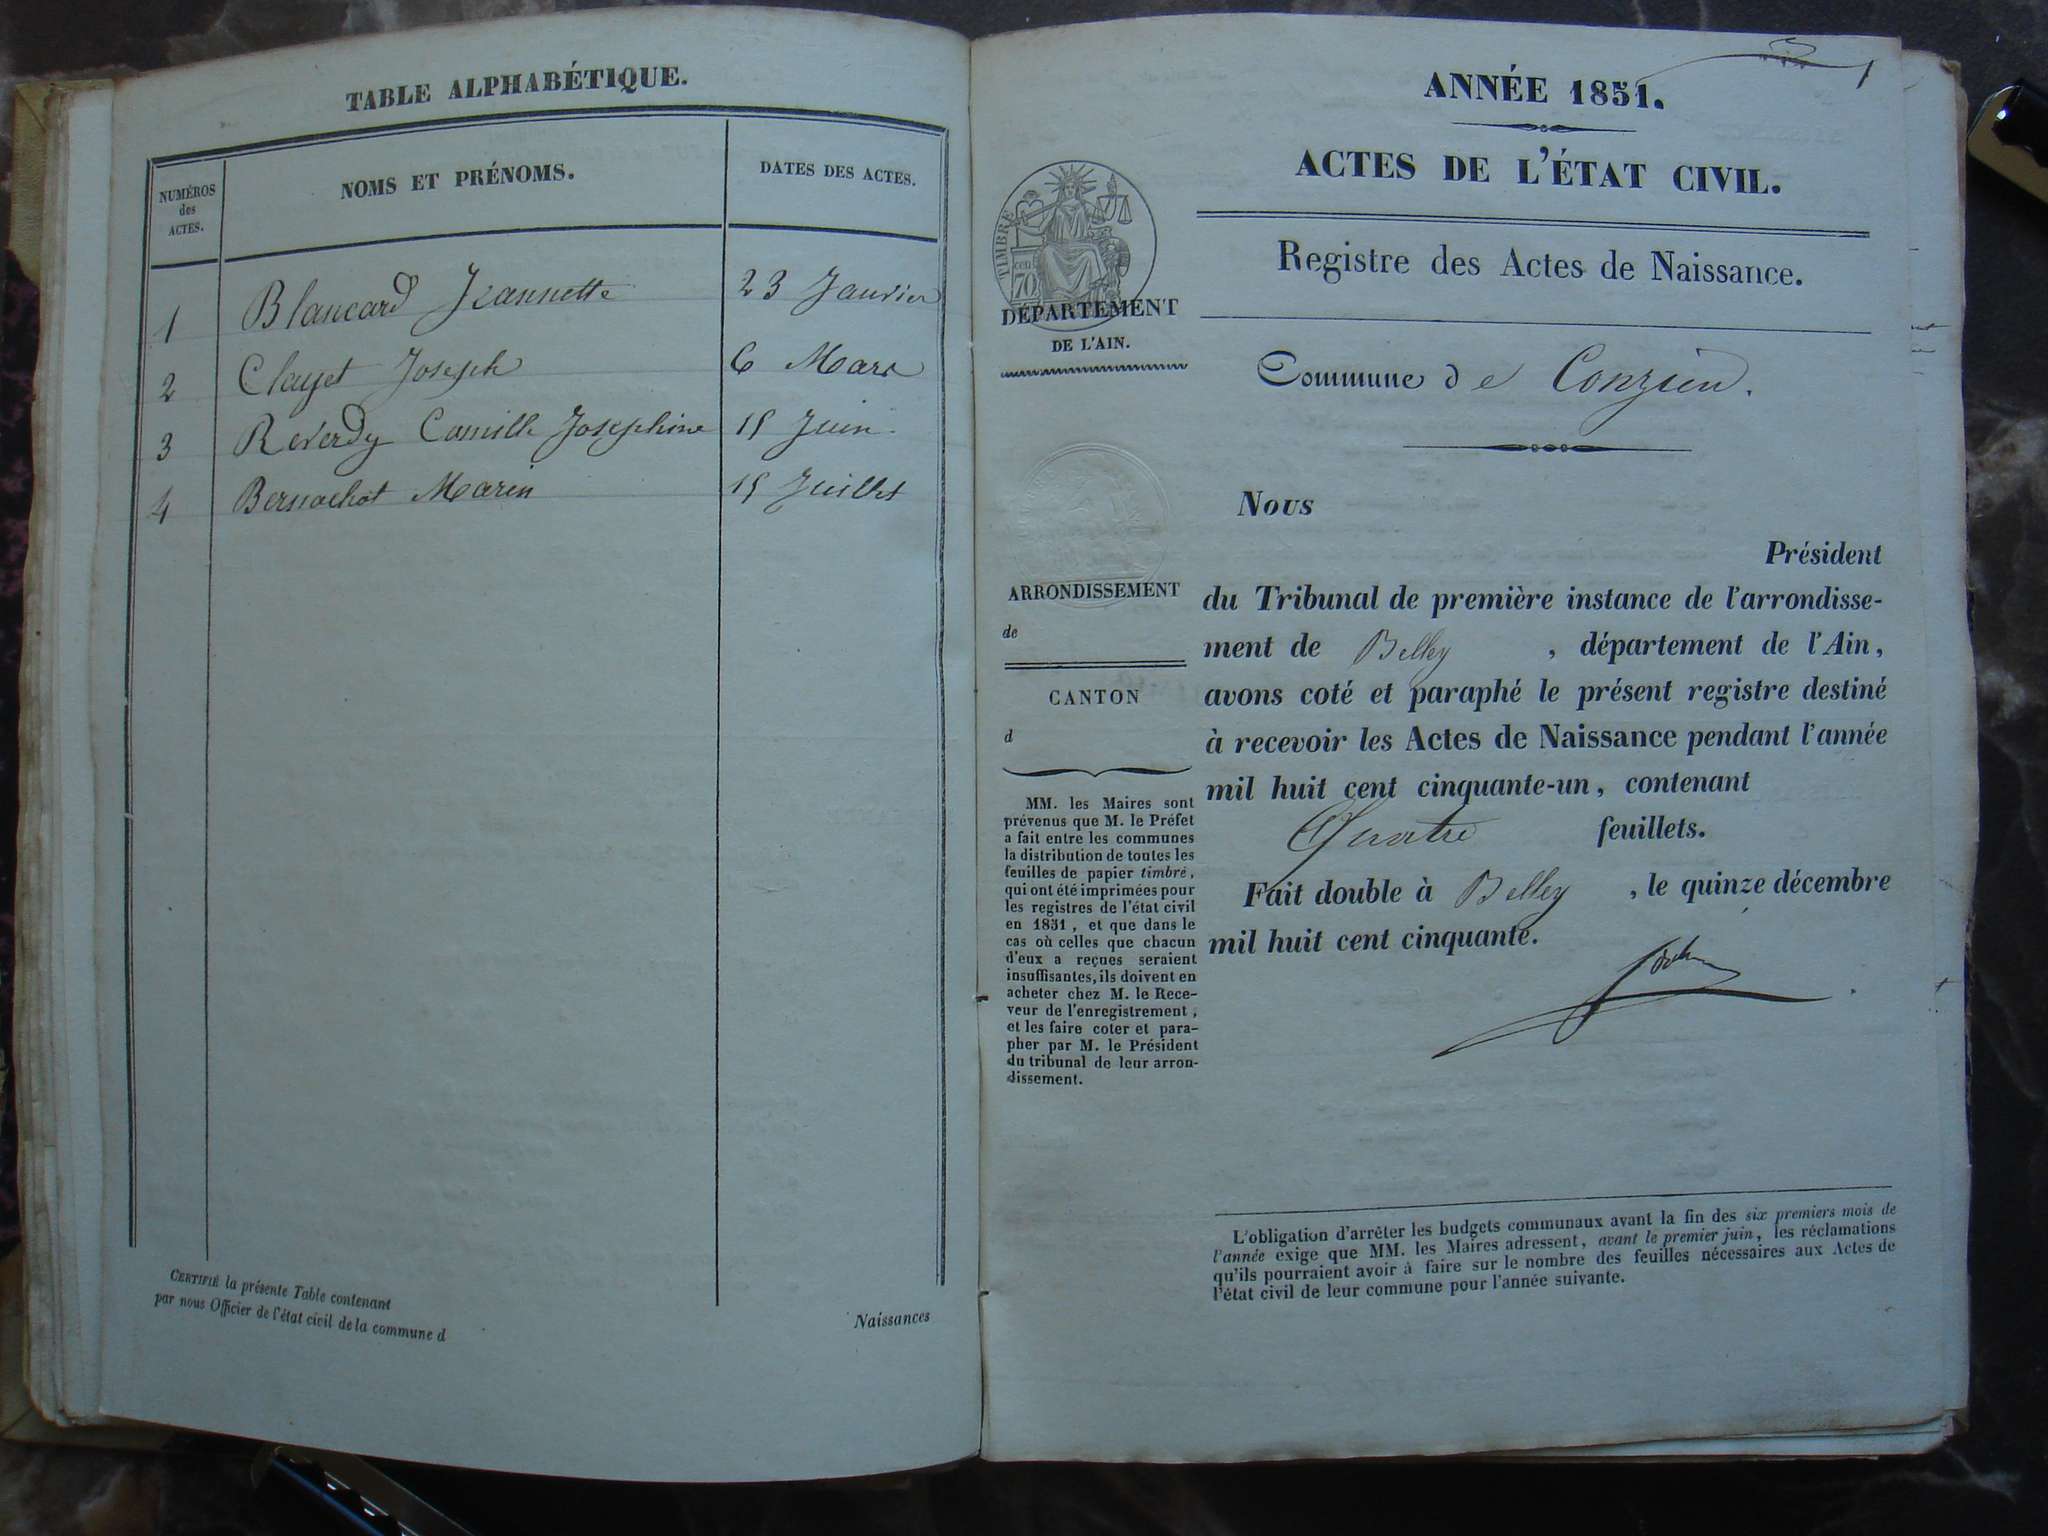 TABLE ALPHABÉTIQUE.
NUMÉROS
des
ACTES.
NOMS ET PRÉNOMS.
DATES DES ACTES.
1 Blancard Jeannette 23 Janvier
2 Clayet Joseph 6 Mars
3 Reverdy Camille Josephine 15 Juin
4 Bernachot Marin 15 Juillet
CERTIFIÉ la présente Table contenant
par nous Officier de l'état civil de la commune d
Naissances
1
ANNÉE 1851.
ACTES DE L'ÉTAT CIVIL.
Registre des Actes de Naissance.
TIMBRE
cent
70
DÉPARTEMENT
DE L'AIN.
Commune de Conzieu.
ARRONDISSEMENT
de
CANTON
d
MM. les Maires sont
prévenus que M. le Préfet
a fait entre les communes
la distribution de toutes les
feuilles de papier timbré,
qui ont été imprimées pour
les registres de l'état civil
en 1851, et que dans le
cas où celles que chacun
d'eux a reçues seraient
insuffisantes, ils doivent en
acheter chez M. le Rece-
veur de l'enregistrement,
et les faire coter et para-
pher par M. le Président
du tribunal de leur arron-
dissement.
Nous
Président
du Tribunal de première instance de l'arrondisse-
ment de Belley, département de l'Ain,
avons coté et paraphé le présent registre destiné
à recevoir les Actes de Naissance pendant l'année
mil huit cent cinquante-un, contenant
Quatre feuillets.
Fait double à Belley, le quinze décembre
mil huit cent cinquante.
L'obligation d'arrêter les budgets communaux avant la fin des six premiers mois de
l'année exige que MM. les Maires adressent, avant le premier juin, les réclamations
qu'ils pourraient avoir à faire sur le nombre des feuilles nécessaires aux Actes de
l'état civil de leur commune pour l'année suivante.